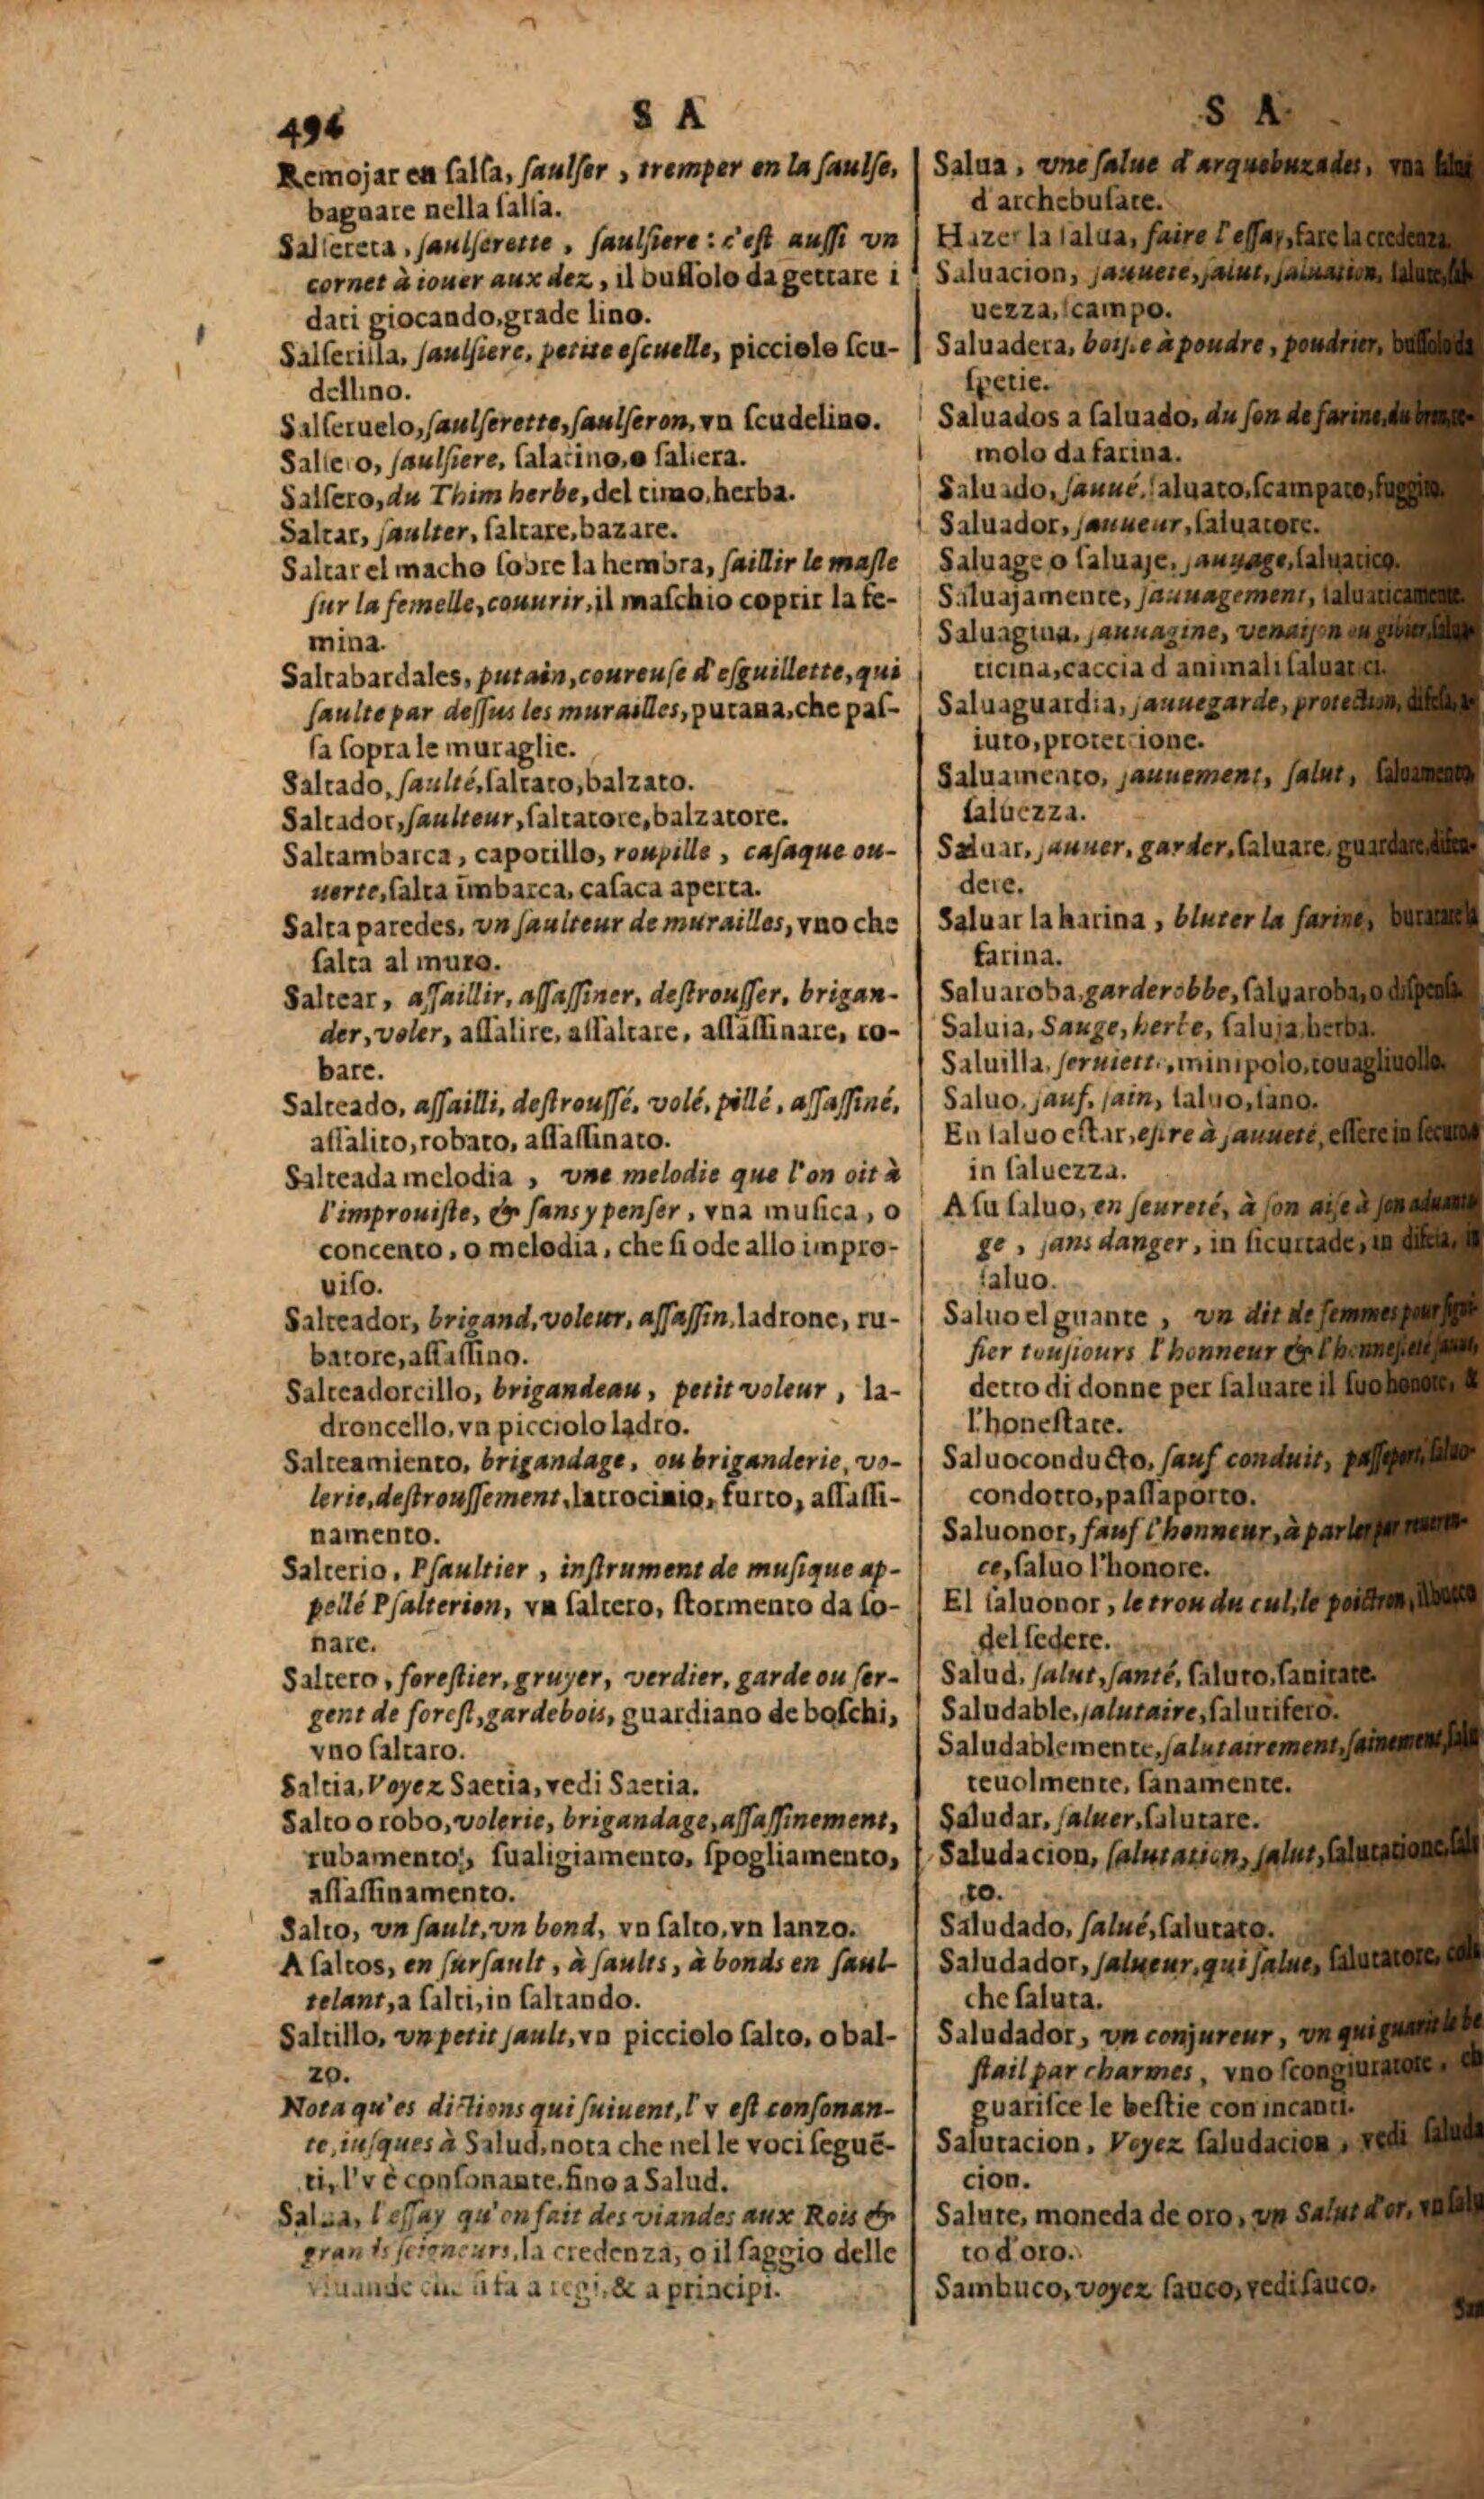 496
S A
Remojar en ſalſa, ſaulſer, tremper en la ſaulſe,
bagnare nella ſalſa.
Salſereta, ſaulſerette, ſaulſiere: c'eſt auſſi vn
cornet à iouer aux dez, il buſſolo da gettare i
dati giocando, grade lino.
Salſerilla, ſaulſiere, petite eſcuelle, picciolo ſcu-
dellino.
Salſeruelo, ſaulſerette, ſaulſeron, vn ſcudelino.
Salſero, ſaulſiere, ſalatino, o ſaliera.
Salſero, du Thim herbe, del timo, herba.
Saltar, ſaulter, ſaltare, bazare.
Saltar el macho ſobre la hembra, ſaillir le maſle
ſur la femelle, couurir, il maſchio coprir la fe-
mina.
Saltabardales, putain, coureuſe d'eſguillette, qui
ſaulte par deſſus les murailles, putana, che paſ-
ſa ſopra le muraglie.
Saltado, ſaulté, ſaltato, balzato.
Saltador, ſaulteur, ſaltatore, balzatore.
Saltambarca, capotillo, roupille, caſaque ou-
uerte, ſalta imbarca, caſaca aperta.
Salta paredes, vn ſaulteur de murailles, vno che
ſalta al muro.
Saltear, aſſaillir, aſſaſſiner, deſtrouſſer, brigan-
der, voler, aſſalire, aſſaltare, aſſaſſinare, ro-
bare.
Salteado, aſſailli, deſtrouſſé, volé, pillé, aſſaſſiné,
aſſalito, robato, aſſaſſinato.
Salteada melodia, vne melodie que l'on oit à
l'improuiſte, & ſans y penſer, vna muſica, o
concento, o melodia, che ſi ode allo impro-
uiſo.
Salteador, brigand, voleur, aſſaſſin, ladrone, ru-
batore, aſſaſſino.
Salteadorcillo, brigandeau, petit voleur, la-
droncello, vn picciolo ladro.
Salteamiento, brigandage, ou briganderie, vo-
lerie, deſtrouſſement, latrocinio, furto, aſſaſſi-
namento.
Salterio, Pſaultier, inſtrument de muſique ap-
pellé Pſalterion, vn ſaltero, ſtormento da ſo-
nare.
Saltero, foreſtier, gruyer, verdier, garde ou ſer-
gent de foreſt, gardebois, guardiano de boſchi,
vno ſaltaro.
Saltia, Voyez Saetia, vedi Saetia.
Salto o robo, volerie, brigandage, aſſaſſinement,
rubamento, ſualigiamento, ſpogliamento,
aſſaſſinamento.
Salto, vn ſault, vn bond, vn ſalto, vn lanzo.
A ſaltos, en ſurſault, à ſaults, à bonds en ſaul-
telant, a ſalti, in ſaltando.
Saltillo, vn petit ſault, vn picciolo ſalto, o bal-
zo.
Nota qu'es dictions qui ſuiuent, l'v eſt conſonan-
te, iuſques à Salud, nota che nel le voci ſeguē-
ti, l'v è conſonante, fino a Salud.
Salua, l'eſſay qu'on fait des viandes aux Rois &
grands ſeigneurs, la credenza, o il ſaggio delle
viuande che ſi fa a regi, & a principi.
S A
Salua, vne ſalue d'arquebuzades, vna
d'archebuſate.
Hazer la ſalua, faire l'eſſay, fare la credenza.
Saluacion, ſauueté, ſalut, ſaluation, ſalute,
uezza, ſcampo.
Saluadera, boiſte à poudre, poudrier, buſſolo da
ſpetie.
Saluados a ſaluado, du ſon de farine, du bren,
molo da farina.
Saluado, ſauué, ſaluato, ſcampato, fuggito.
Saluador, ſauueur, ſaluatore.
Saluage o ſaluaje, ſauuage, ſaluatico.
Saluajamente, ſauuagement, ſaluaticamente.
Saluagina, ſauuagine, venaiſon ou gibier,
ticina, caccia d animali ſaluatici.
Saluaguardia, ſauuegarde, protection, difeſa,
iuto, protettione.
Saluamento, ſauuement, ſalut, ſaluamento,
ſaluezza.
Saluar, ſauuer, garder, ſaluare, guardare, difen-
dere.
Saluar la harina, bluter la farine, buratare la
farina.
Saluaroba, garderobbe, ſaluaroba, o diſpenſa.
Saluia, Sauge, herbe, ſaluia herba.
Saluilla, ſeruiette, minipolo, touagliuollo.
Saluo, ſauf, ſain, ſaluo, ſano.
En ſaluo eſtar, eſtre à ſauueté, eſſere in
in ſaluezza.
A ſu ſaluo, en ſeureté, à ſon aiſe à ſon aduanta-
ge, ſans danger, in ſicurtade, in difeſa, in
ſaluo.
Saluo el guante, vn dit de femmes pour ſigni-
fier touſiours l'honneur & l'honneſteté
detto di donne per ſaluare il ſuo honore, &
l'honeſtate.
Saluoconducto, ſauf conduit, paſſeport, ſaluo-
condotto, paſſaporto.
Saluonor, ſauf l'honneur, à parler par reueren-
ce, ſaluo l'honore.
El ſaluonor, le trou du cul, le poictron,
del ſedere.
Salud, ſalut, ſanté, ſaluto, ſanitate.
Saludable, ſalutaire, ſalutifero.
Saludablemente, ſalutairement, ſainement,
teuolmente, ſanamente.
Saludar, ſaluer, ſalutare.
Saludacion, ſalutation, ſalut, ſalutatione,
to.
Saludado, ſalué, ſalutato.
Saludador, ſalueur, qui ſalue, ſalutatore,
che ſaluta.
Saludador, vn conjureur, vn qui guarit le be
ſtail par charmes, vno ſcongiuratore,
guariſce le beſtie con incanti.
Salutacion, Voyez ſaludacion, vedi ſaluda
cion.
Salute, moneda de oro, vn Salut d'or,
to d'oro.
Sambuco, voyez ſauco, vedi ſauco.